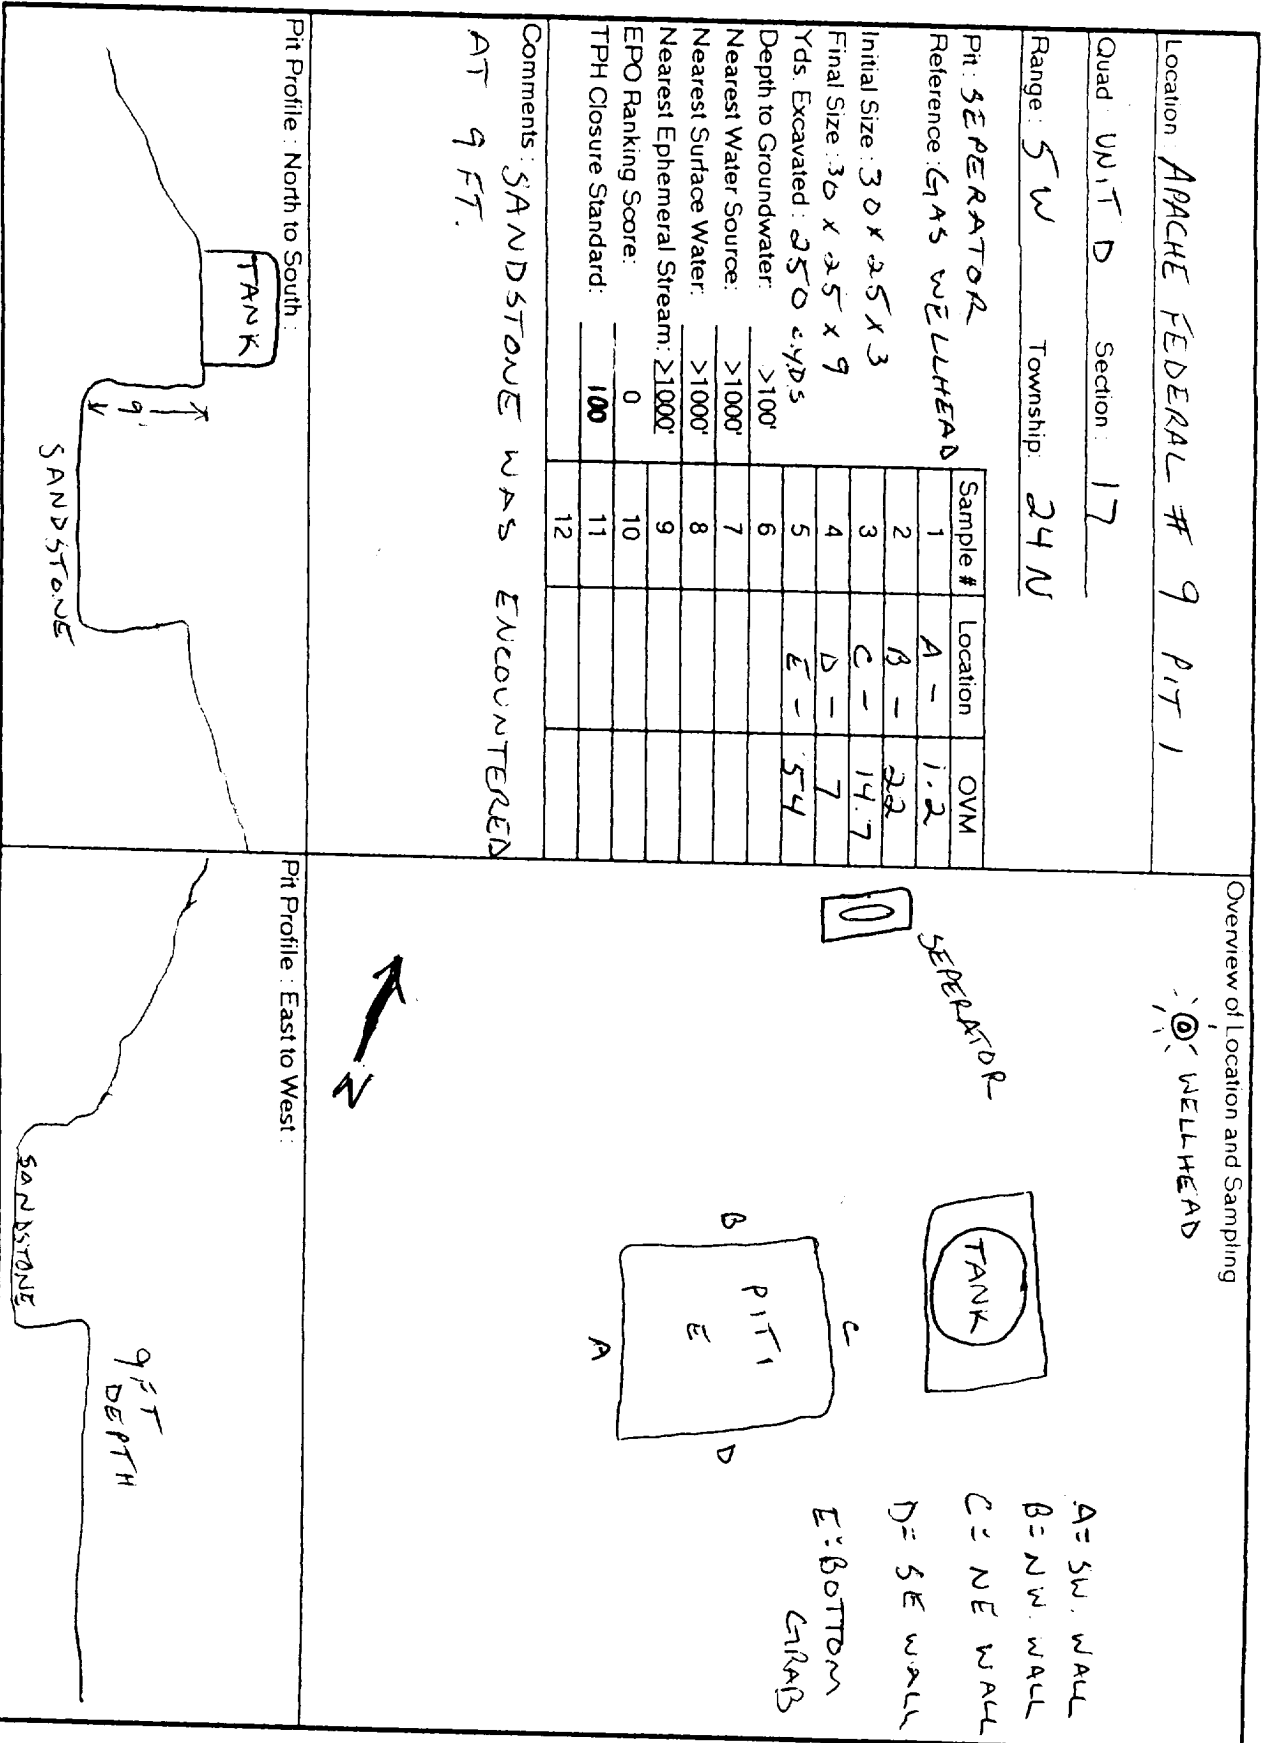 Location: APACHE FEDERAL # 9 PIT 1
Quad: UNIT D Section: 17
Range: 5 W Township: 24 N
Pit: SEPERATOR
Reference: GAS WELLHEAD
Initial Size: 30 x 25 x 3
Final Size: 30 x 25 x 9
Yds. Excavated: 250 c.yDS
Depth to Groundwater: >100'
Nearest Water Source: >1000'
Nearest Surface Water: >1000'
Nearest Ephemeral Stream: >1000'
EPO Ranking Score: 0
TPH Closure Standard: 100
Sample # Location OVM
1 A - 1.2
2 B - 22
3 C - 14.7
4 D - 7
5 E - 54
6
7
8
9
10
11
12
Comments: SANDSTONE WAS ENCOUNTERED
AT 9 FT.
Overview of Location and Sampling
WELLHEAD
SEPERATOR
TANK
A= SW. WALL
B= NW. WALL
C= NE WALL
D= SE WALL
E= BOTTOM
GRAB
C
B
PIT 1
E
D
A
N
Pit Profile: North to South:
TANK
9'
SANDSTONE
Pit Profile: East to West:
9 FT
DEPTH
SANDSTONE